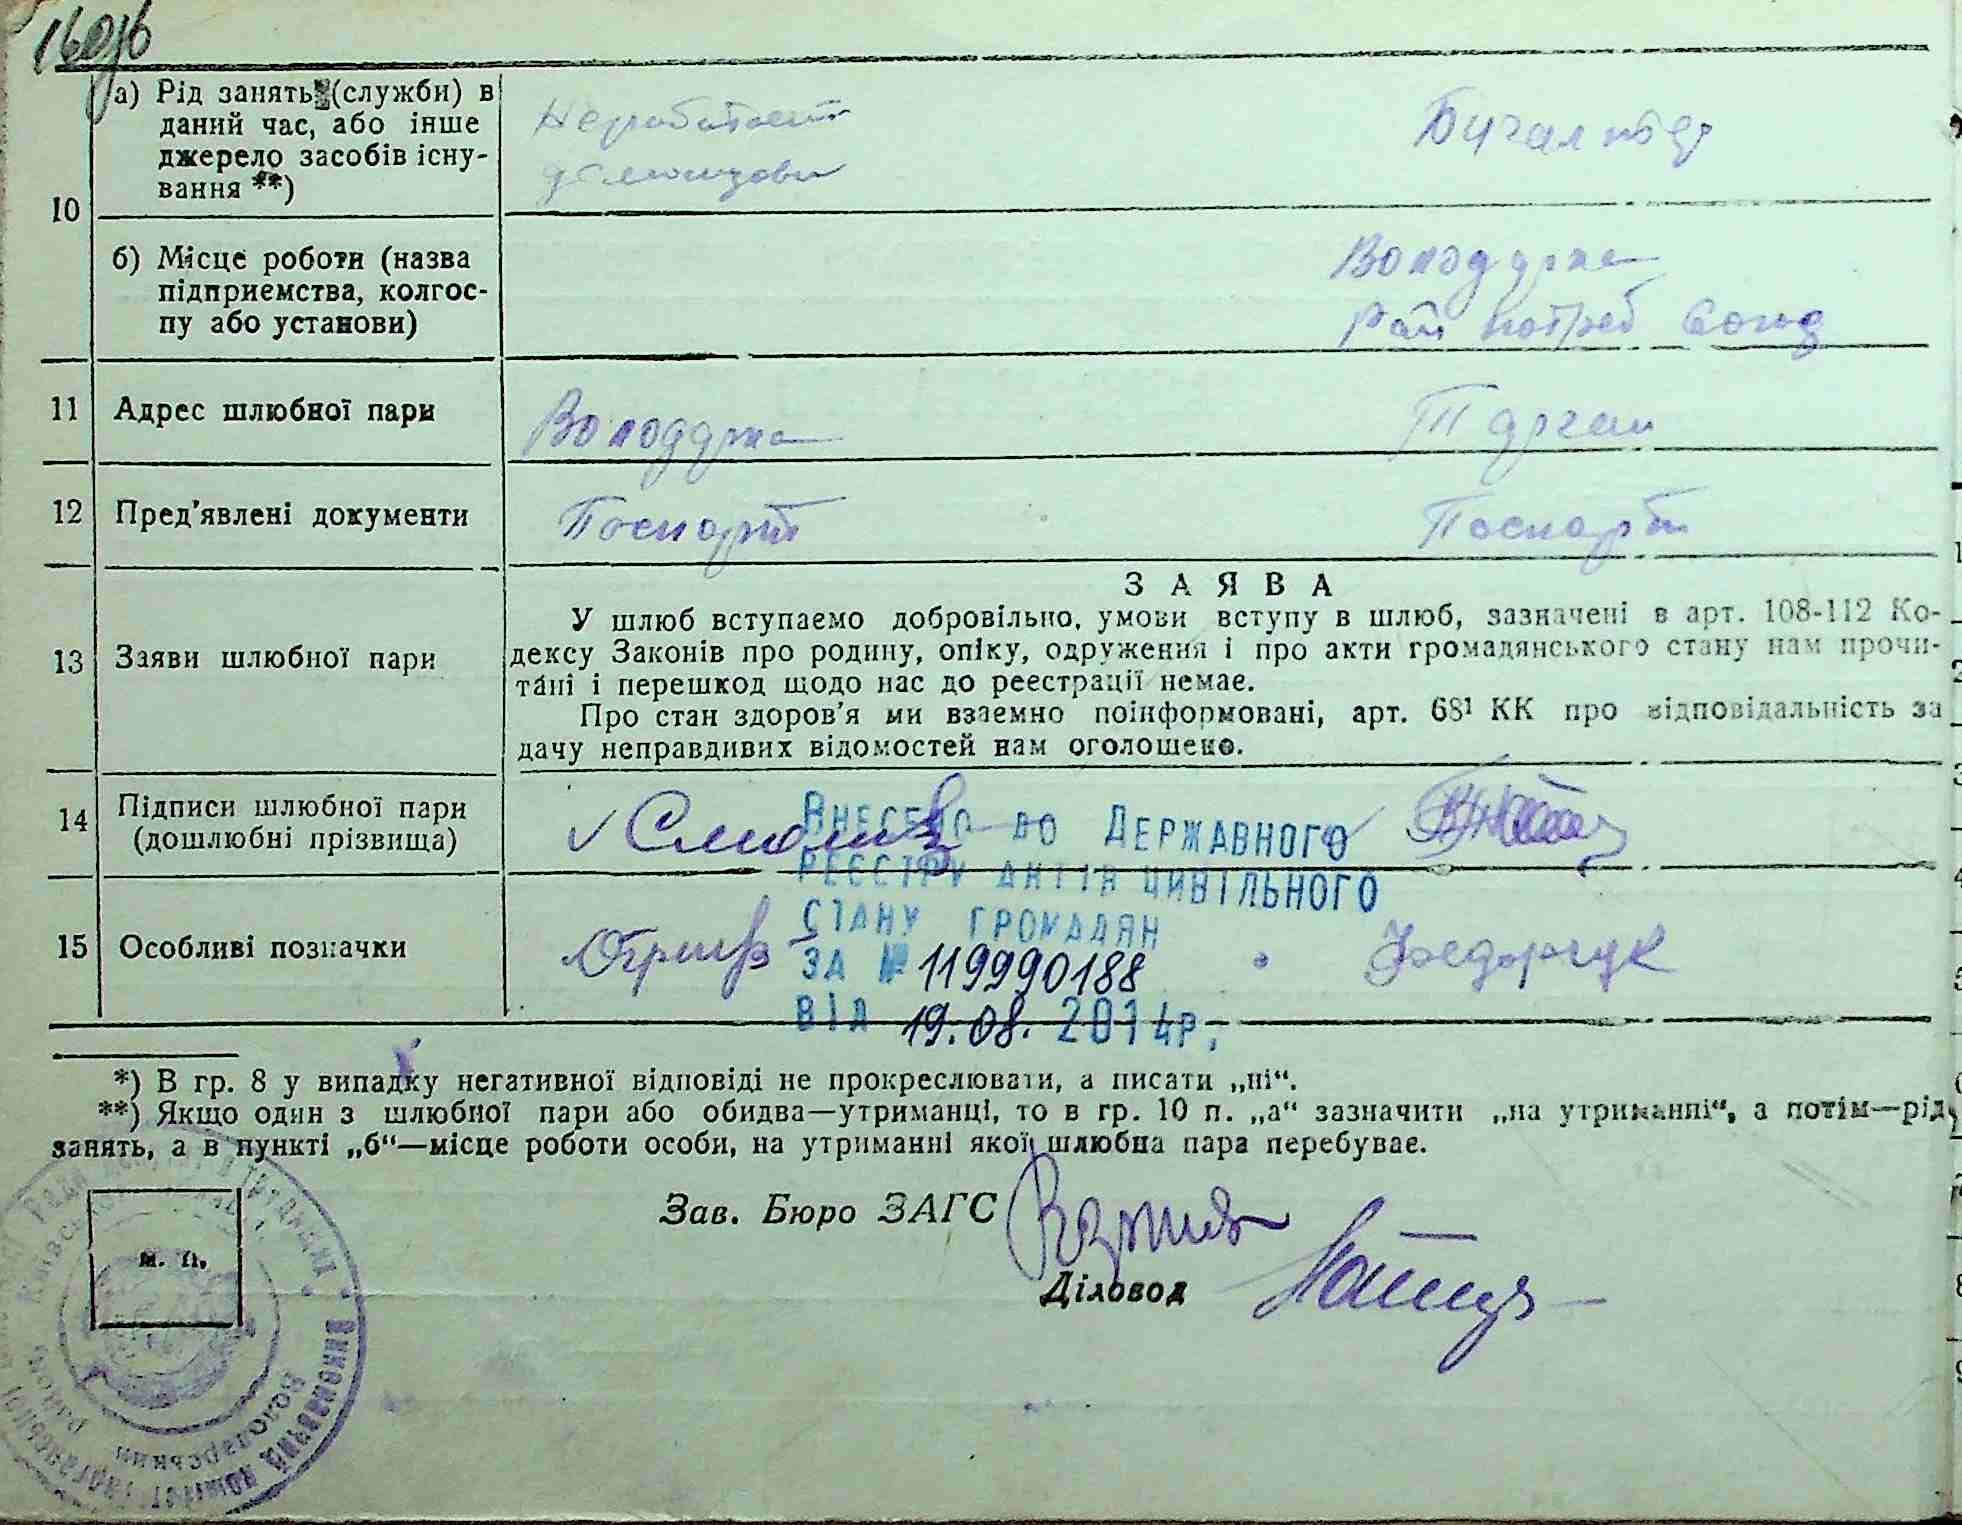 160/6
10
а) Рід занять (служби) в
даний час, або інше
джерело засобів існу-
вання **)
Неработает
Бухгалтер
домохозяйка
б) Місце роботи (назва
підприємства, колгос-
пу або установи)
Володарка
Рай потреб союз
11 Адрес шлюбної пари
Володарка
Торчин
12 Пред'явлені документи
Паспорт
Паспорт
13 Заяви шлюбної пари
ЗАЯВА
У шлюб вступаємо добровільно, умови вступу в шлюб, зазначені в арт. 108-112 Ко-
дексу Законів про родину, опіку, одруження і про акти громадянського стану нам прочи-
тані і перешкод щодо нас до реєстрації немає.
Про стан здоров'я ми взаємно поінформовані, арт. 68¹ КК про відповідальність за
дачу неправдивих відомостей нам оголошено.
14 Підписи шлюбної пари
(дошлюбні прізвища)
15 Особливі позначки
Федорчук
Внесено до Державного
реєстру актів цивільного
стану громадян
за № 119990188
від 19.08.2014р.
*) В гр. 8 у випадку негативної відповіді не прокреслювати, а писати „ні“.
**) Якщо один з шлюбної пари або обидва—утриманці, то в гр. 10 п. „а“ зазначити „на утриманні“, а потім—рід
занять, а в пункті „б“—місце роботи особи, на утриманні якої шлюбна пара перебуває.
Зав. Бюро ЗАГС
м. п.
Діловод